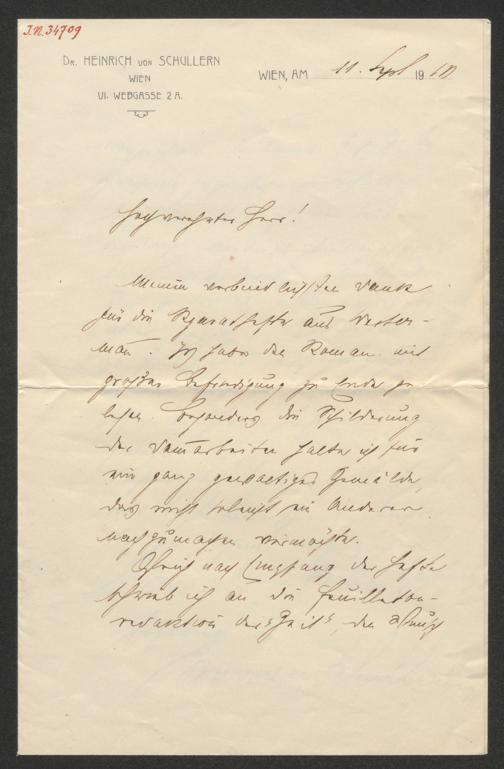 J.N. 34709
DR. HEINRICH VON SCHULLERN
WIEN
VI. WEBGASSE 2 A.
WIEN, AM 11. Sept 19
Hochverehrter Herr!
Meinen verbindlichsten Dank
für die
Ich habe den Roman mit
großer Befriedigung zu Ende ge-
lesen. Besonders die Schilderung
der Dammarbeiten halte ich für
ein ganz gewaltiges Gemälde,
das nicht leicht ein Anderer
nachzumachen vermöchte.
Gleich nach Empfang der Hefte
schrieb ich an die Feuilleton-
redaktion der "Zeit", den